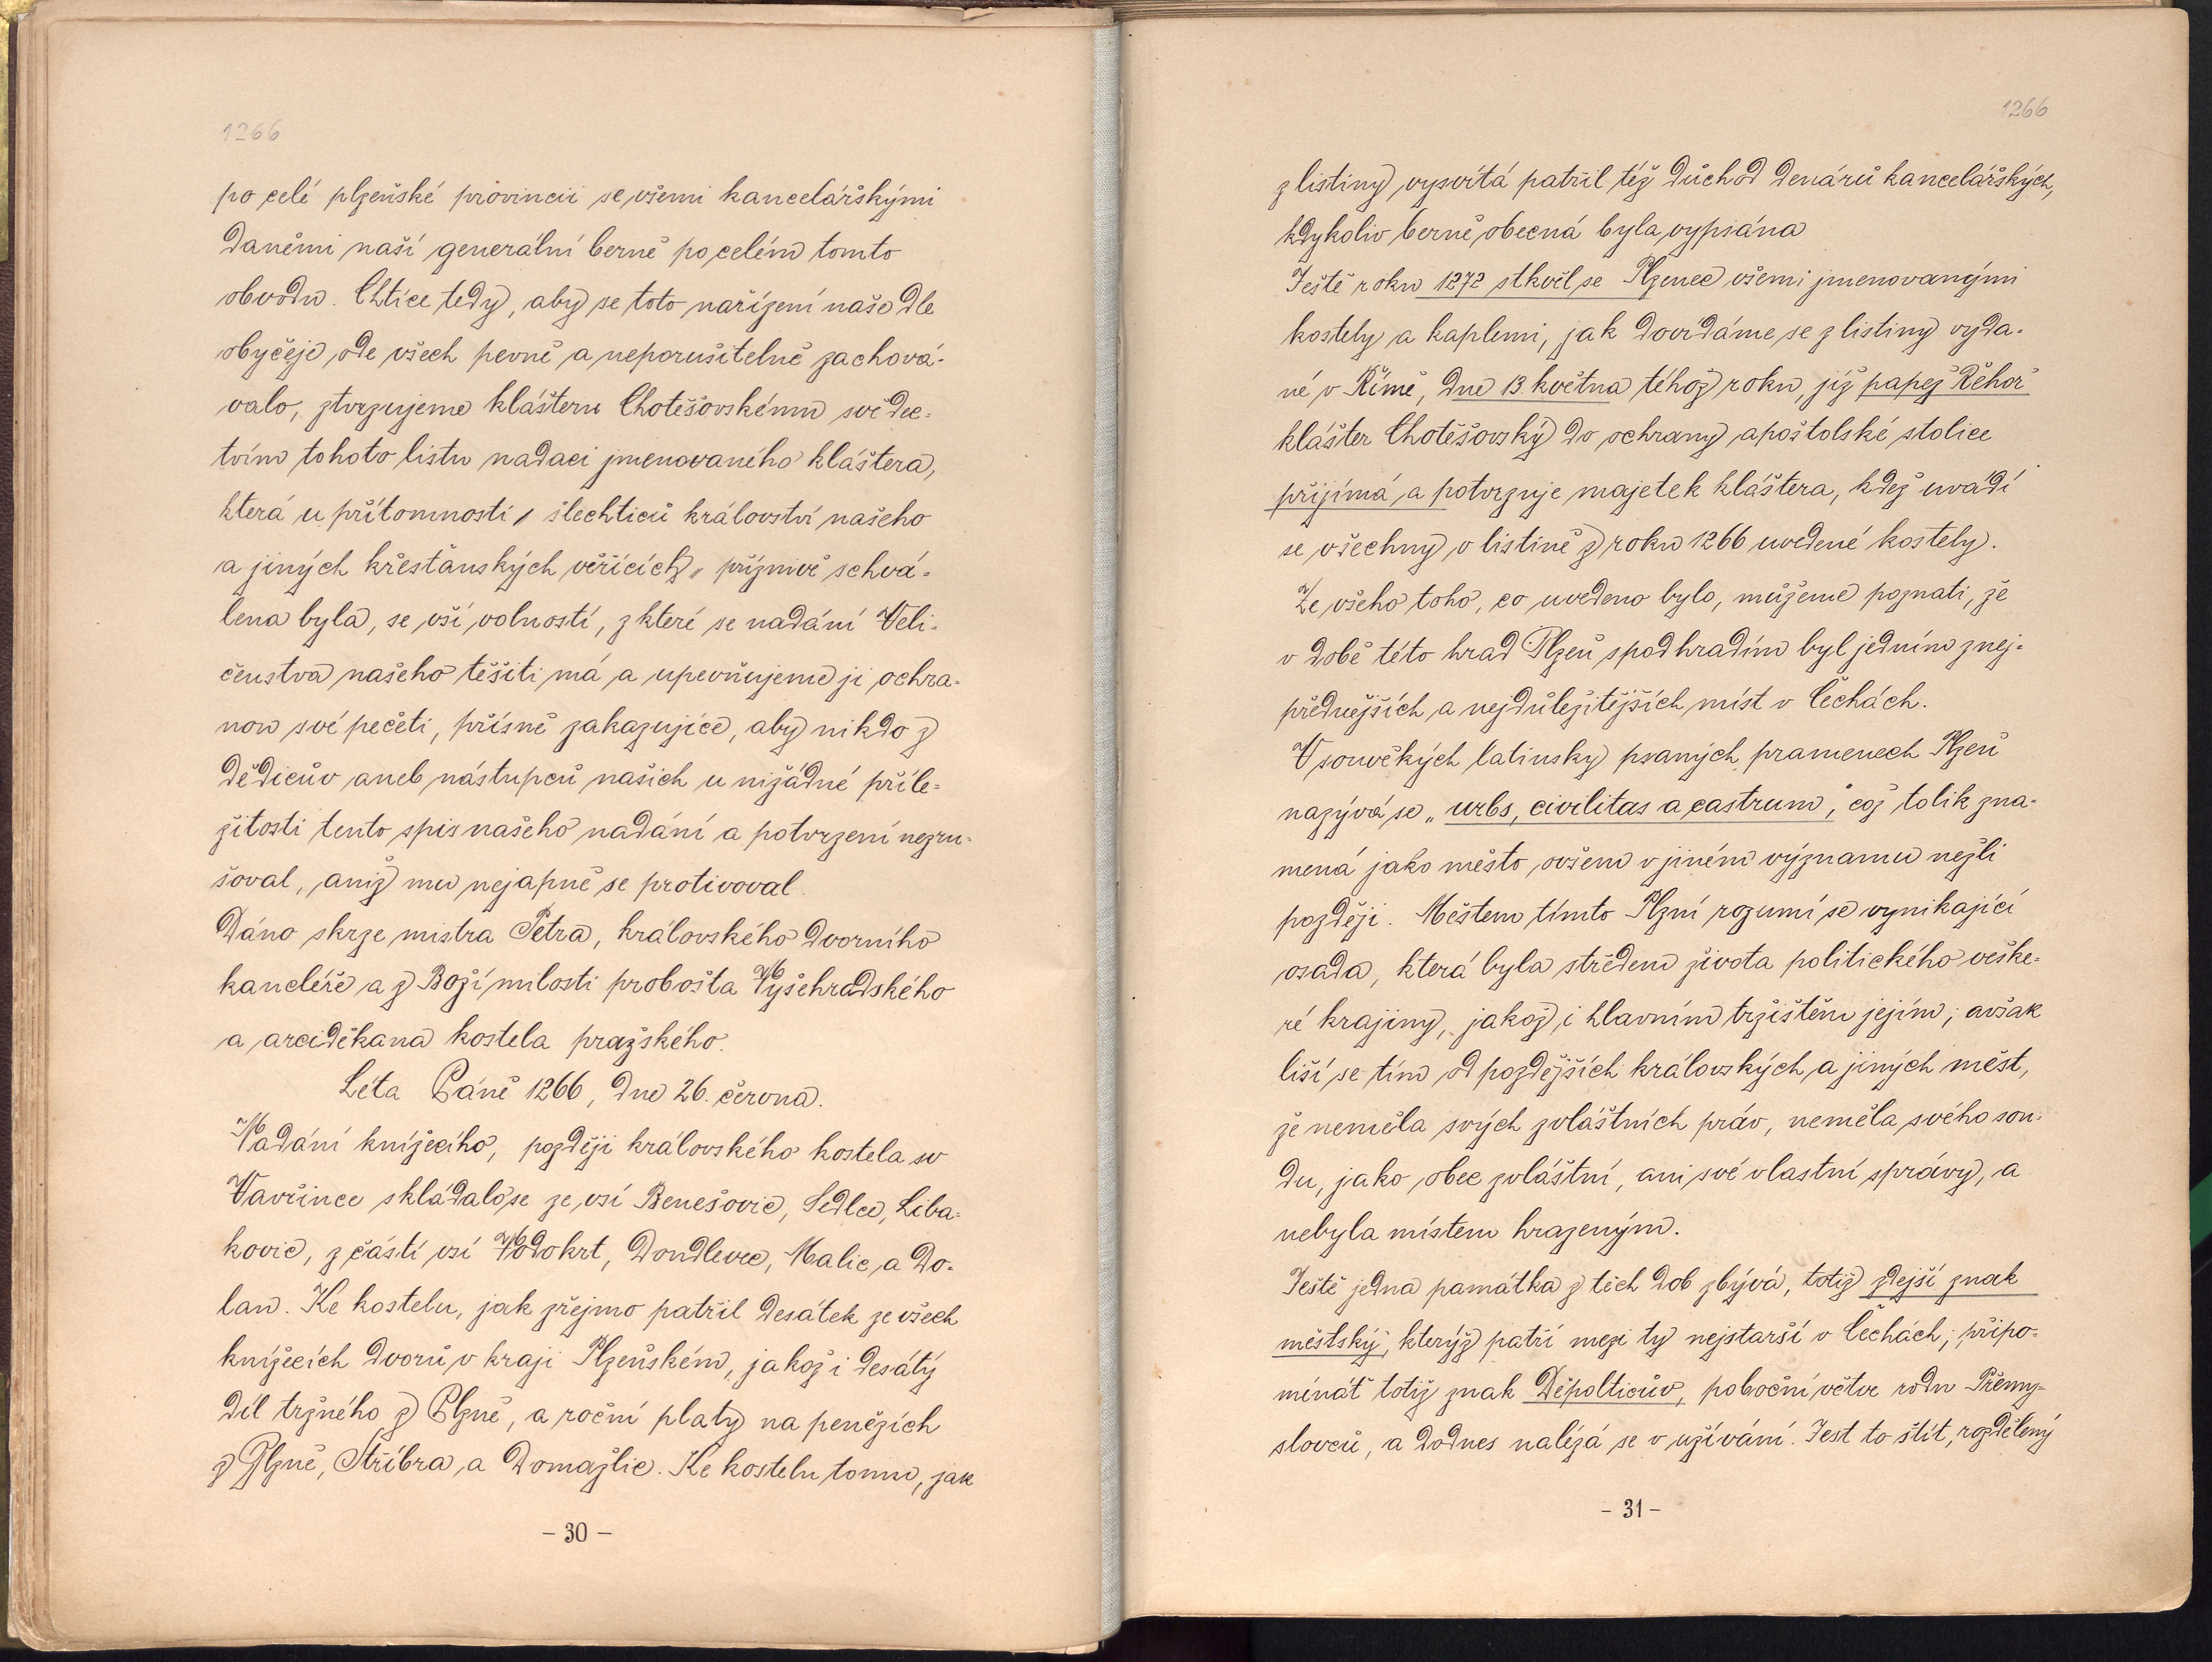 1266
po celé plzeňské provincii se všemi kancelářskými
daněmi naší generální berně po celém tomto
obvodu. Chtíce tedy, aby se toto nařízení naše dle
obyčeje ode všech pevně a neporušitelně zachová-
valo, ztvrzujeme klášteru Chotěšovskému svědec-
tvím tohoto listu nadaci jmenovaného kláštera,
která u přítomnosti, šlechticů království našeho
a jiných křesťanských věřících, příznivě schvá-
lena byla, se vší volností, z které se nadání Veli-
čenstva našeho těšiti má a upevňujeme ji ochra-
nou své pečeti, přísně zakazujíce, aby nikdo z
dědicův aneb nástupců našich u nižádné příle-
žitosti tento spis našeho nadání a potvrzení nezru-
šoval, aniž mu nejapně se protivoval.
Dáno skrze mistra Petra, královského dvorního
kancléře a z Boží milosti probošta Vyšehradského
a arciděkana kostela pražského.
Léta Páně 1266, dne 26. června.
Nadání knížecího, později královského kostela sv
Vavřince skládalo se ze vsí Benešovic, Sedlce, Liba-
kovic, z částí vsí Vodokrt, Doudlevec, Malic a Do-
lan. Ke kostelu, jak zřejmo patřil desátek ze všech
knížecích dvorů v kraji Plzeňském, jakož i desátý
díl tržného z Plzně, a roční platy na penězích
z Plzně, Stříbra, a Domažlic. Ke kostelu tomu, jak
- 30 -
1266
z listiny vysvítá patřil též důchod denárů kancelářských,
kdykoliv berně obecná byla vypsána
Ještě roku 1272 stkvěl se Plzenec všemi jmenovanými
kostely a kaplemi, jak dovídáme se z listiny vyda-
né v Římě, dne 13. května téhož roku, jíž papež Řehoř
klášter Chotěšovský do ochrany apoštolské stolice
přijímá a potvrzuje majetek kláštera, kdež uvádí
se všechny v listině z roku 1266 uvedené kostely.
Ze všeho toho, co uvedeno bylo, můžeme poznati, že
v době této hrad Plzeň s podhradím byl jedním z nej-
přednějších a nejdůležitějších míst v Čechách.
V souvěkých latinsky psaných pramenech Plzeň
nazývá se „urbs, civilitas a castrum," což tolik zna-
mená jako město, ovšem v jiném významu nežli
později. Městem tímto Plzní rozumí se vynikající
osada, která byla středem života politického veške-
ré krajiny, jakož i hlavním tržištěm jejím; avšak
liší se tím od pozdějších královských a jiných měst,
že neměla svých zvláštních práv, neměla svého sou-
du, jako obec zvláštní, ani své vlastní správy, a
nebyla místem hrazeným.
Ještě jedna památka z těch dob zbývá, totiž zdejší znak
městský, kterýž patří mezi ty nejstarší v Čechách; připo-
mínáť totiž znak Děpolticův, poboční větve rodu Přemy-
slovců, a dodnes nalézá se v užívání. Jest to štít, rozdělený
- 31 -